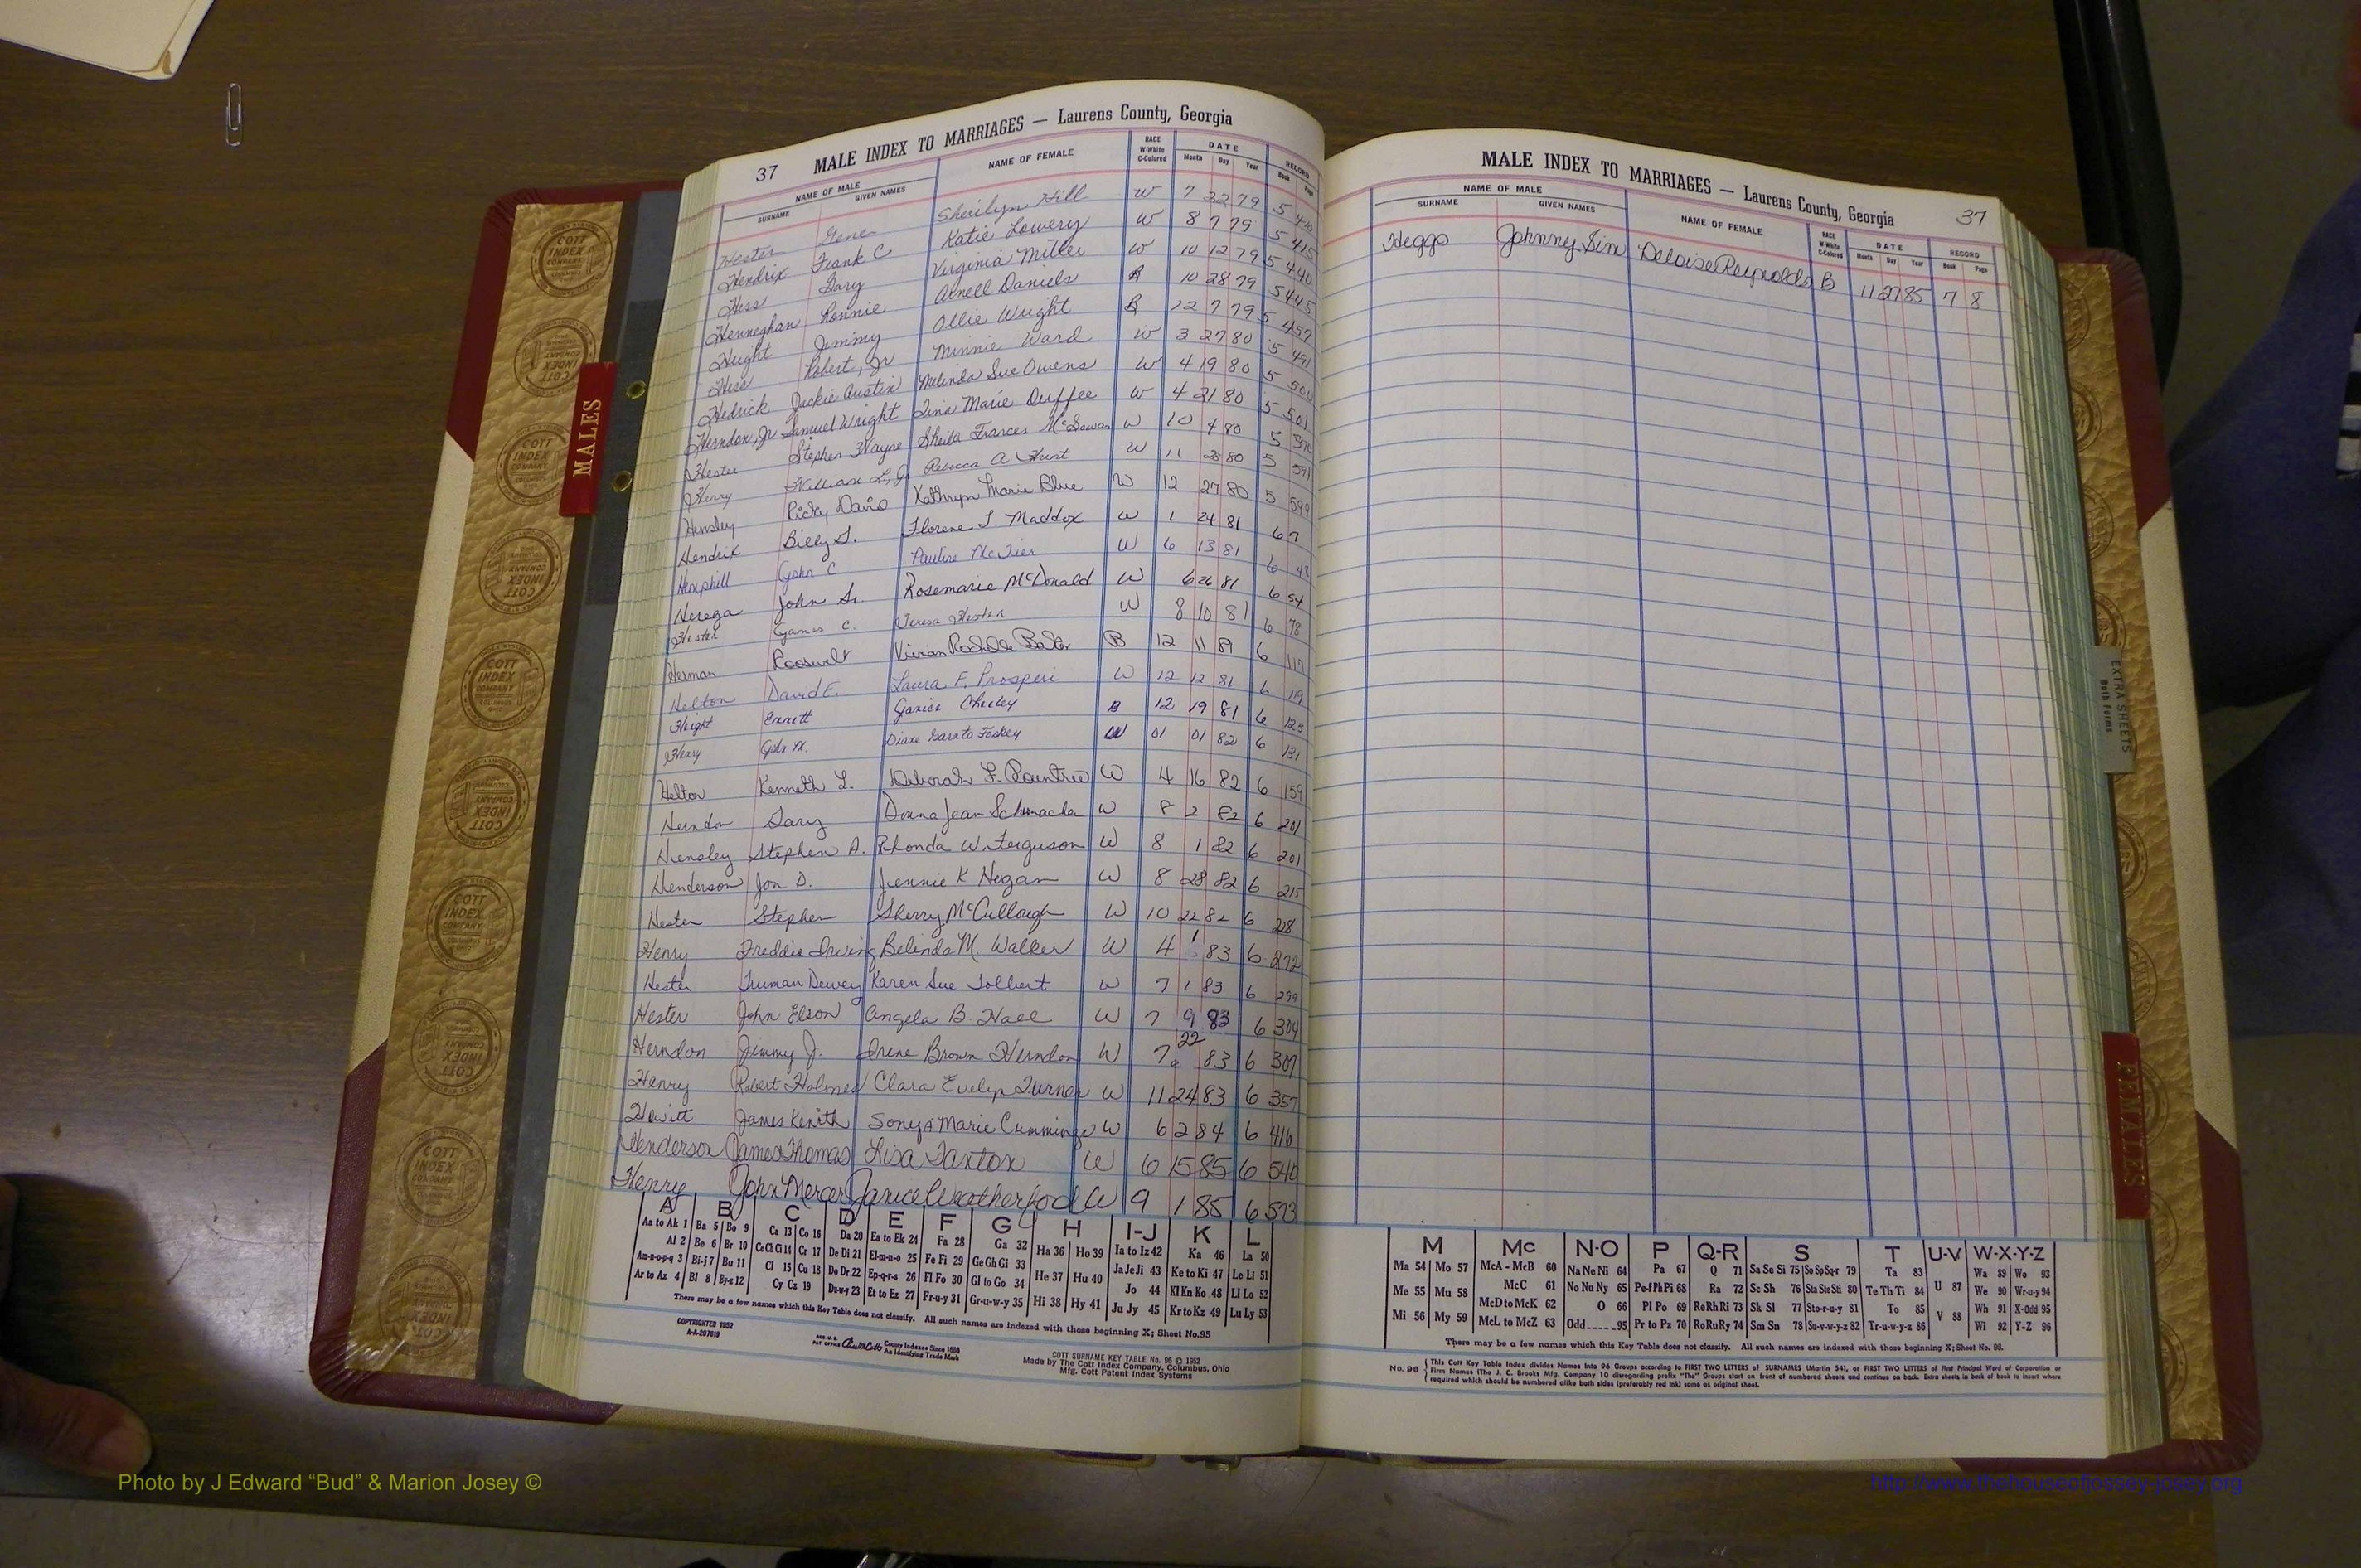 37 MALE INDEX TO MARRIAGES — Laurens County, Georgia
NAME OF MALE NAME OF FEMALE RACE W-White C-Colored DATE RECORD
SURNAME GIVEN NAMES Month Day Year Book Page
Hester Gene Sherilyn Hill W 7 22 79 5
Hendrix Frank C Katie Lowery W 8 7 79 5 415
Hess Gary Virginia Miller W 10 12 79 5 440
Henneghan Ronnie Arnell Daniels B 10 28 79 5 445
Height Jimmy Ollie Wright B 12 7 79 5 457
Hess Robert, Jr Minnie Ward W 3 27 80 5 491
Hedrick Jackie Austin Melinda Sue Owens W 4 19 80 5 500
Herndon, Jr Samuel Wright Tina Marie Duffee W 4 21 80 5 501
Hester Stephen Wayne Sheila Frances W 10 4 80 5 570
Henry William L, Jr Rebecca A. Hunt W 11 28 80 5 591
Hensley Ricky David Kathryn Marie Blue W 12 27 80 5 599
Hendrix Billy J. Florene J. Maddox W 1 24 81 6 7
Hemphill John C Pauline McTier W 6 13 81 6 48
Herega John Sr. Rosemarie McDonald W 6 26 81 6 54
Hester James C. Teresa Hester W 8 10 81 6 78
Herman Roosevelt Vivian Rochelle B 12 11 81 6 117
Helton David E. Laura F. Prosperi W 12 12 81 6 119
Height Emmett Janice Cheeley B 12 19 81 6 125
Henry John W. Diane Foskey W 01 01 82 6 131
Helton Kenneth L. Deborah F. Rountree W 4 16 82 6 159
Herndon Gary Donna Jean Schumacher W 8 2 82 6 201
Hensley Stephen A. Rhonda W. Ferguson W 8 1 82 6 201
Henderson Jon D. Jennie K Hogan W 8 28 82 6 215
Hester Stephen Sherry McCullough W 10 22 82 6 228
Henry Freddie Irving Belinda M. Walker W 4 1 83 6 272
Hester Truman Dewey Karen Sue Tolbert W 7 1 83 6 299
Hester John Elson Angela B. Hall W 7 9 83 6 304
Herndon Jimmy J. Irene Brown Herndon W 7 22 83 6 307
Henry Robert Holmes Clara Evelyn Turner W 11 24 83 6 357
Hewitt James Kenith Sonya Marie Cummings W 6 2 84 6 416
Henderson James Thomas Lisa Taxton W 6 15 85 6 540
Henry John Mercer Janice Weatherford W 9 1 85 6 573
A B C D E F G H I-J K L
Aa to Ak 1 Ba 5 Bo 9 Ca 13 Co 16 Da 20 Ea to Ek 24 Fa 28 Ga 32 Ha 36 Ho 39 Ia to Iz 42 Ka 46 La 50
Al 2 Be 6 Br 10 Ce Ch Ci 14 Cr 17 De Di 21 El-m-n-o 25 Fe Fi 29 Ge Gh Gi 33 He 37 Hu 40 Ja Je Ji 43 Ke to Ki 47 Le Li 51
Am-n-o-p-q 3 Bi-j 7 Bu 11 Cl 15 Cu 18 Do Dr 22 Ep-q-r-s 26 Fl Fo 30 Gl to Go 34 Hi 38 Hy 41 Jo 44 Kl Kn Ko 48 Ll Lo 52
Ar to Az 4 Bl 8 By-z 12 Cy Cz 19 Du-w-y 23 Et to Ez 27 Fr-u-y 31 Gr-u-w-y 35 Ju Jy 45 Kr to Kz 49 Lu Ly 53
There may be a few names which this Key Table does not classify. All such names are indexed with those beginning X; Sheet No. 95
COPYRIGHTED 1952
A-A-207819
REG. U.S. PAT OFFICE County Indexes Since 1888
An Identifying Trade Mark
COTT SURNAME KEY TABLE No. 96 © 1952
Made by The Cott Index Company, Columbus, Ohio
Mfg. Cott Patent Index Systems
MALE INDEX TO MARRIAGES — Laurens County, Georgia 37
NAME OF MALE NAME OF FEMALE RACE W-White C-Colored DATE RECORD
SURNAME GIVEN NAMES Month Day Year Book Page
Heggs Johnny Jim Deloise Reynolds B 11 27 85 7 8
M Mc N-O P Q-R S T U-V W-X-Y-Z
Ma 54 Mo 57 McA - McB 60 Na Ne Ni 64 Pa 67 Q 71 Sa Se Si 75 So Sp Sq-r 79 Ta 83 Wa 89 Wo 93
Me 55 Mu 58 McC 61 No Nu Ny 65 Pe-f Ph Pi 68 Ra 72 Sc Sh 76 Sta Ste Sti 80 Te Th Ti 84 U 87 We 90 Wr-u-y 94
McD to McK 62 O 66 Pl Po 69 Re Rh Ri 73 Sk Sl 77 Sto-r-u-y 81 To 85 Wh 91 X-Odd 95
Mi 56 My 59 McL to McZ 63 Odd 95 Pr to Pz 70 Ro Ru Ry 74 Sm Sn 78 Su-v-w-y-z 82 Tr-u-w-y-z 86 V 88 Wi 92 Y-Z 96
There may be a few names which this Key Table does not classify. All such names are indexed with those beginning X; Sheet No. 95.
No. 96 This Cott Key Table Index divides Names into 96 Groups according to FIRST TWO LETTERS of SURNAMES (Martin 54), or FIRST TWO LETTERS of First Principal Word of Corporation or
Firm Names (The J. C. Brooks Mfg. Company 10 disregarding prefix "The") Groups start on front of numbered sheets and continue on back. Extra sheets in back of book to insert where
required which should be numbered alike both sides (preferably red ink) same as original sheet.
MALES
FEMALES
EXTRA SHEETS
Both Forms
COTT INDEX COMPANY
Photo by J Edward “Bud” & Marion Josey ©
http://www.thehouseofjossey-josey.org